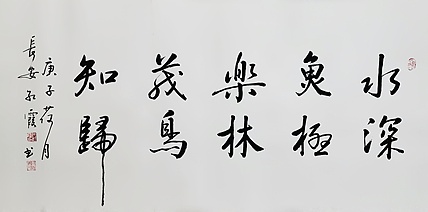 水深
魚極
樂林
茂鳥
知歸
庚子荷月
長安紅霞書